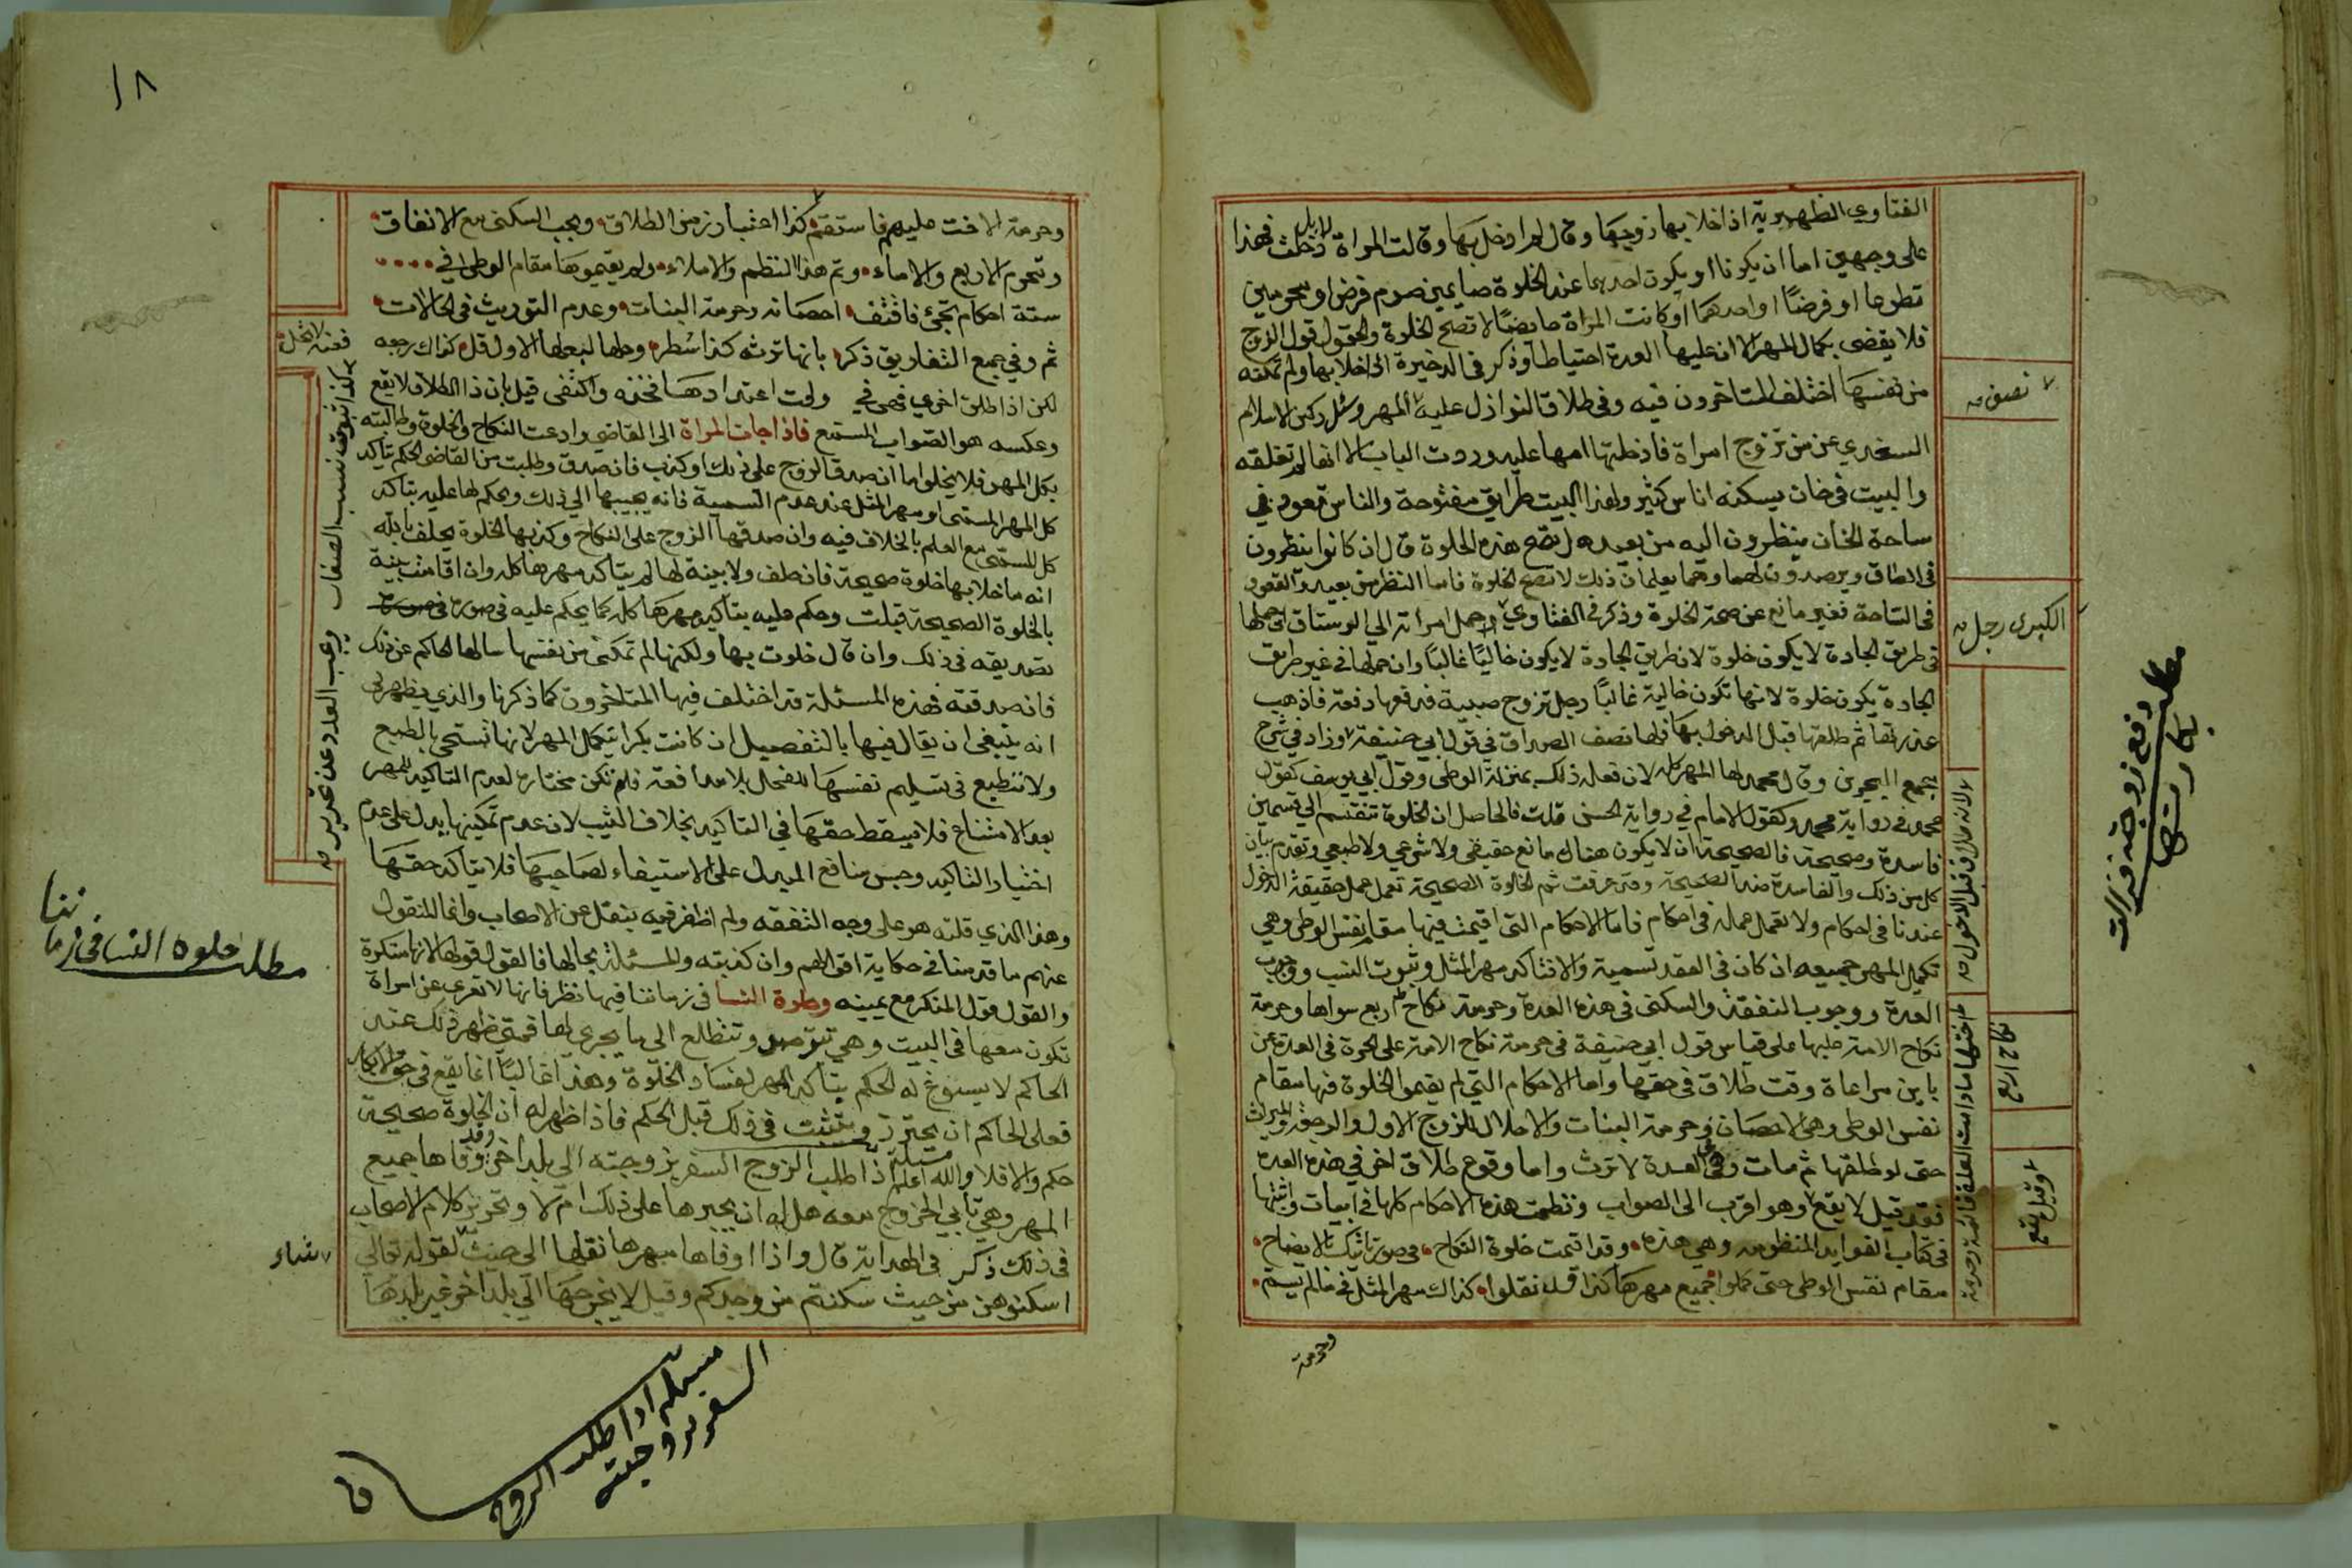 الفتاوي الظهيرية اذا خلا بها زوجها وقال لم ادخل بها وقالت المراة دخلت فهذا
على وجهين اما ان يكونا او يكون احدهما عند الخلوة صايمين صوم فرض او محرمين
تطوعا او فرضًا او احدهما او كانت المراة حايضًا لا تصح الخلوة والقول قول الزوج
فلا يقضى بكمال المهر الا ان عليها العدة احتياطا وذكر في الدخيرة اذا خلا بها ولم تمكنه
من نفسها اختلف المتاخرون فيه وفي طلاق النوازل عليه المهر وسئل ركن الاسلام
السغدي عن من تزوج امراة فادخلتها امها عليه وردت الباب الا انها لم تغلقه
والبيت في خان يسكنه اناس كثير ولهذا البيت طرايق مفتوحة والناس قعود في
ساحة الخان ينظرون اليه من بعيد هل تصح هذه الخلوة قال ان كانوا ينظرون
في الطاق ويترصدون لهما وهما يعلمان ذلك لا تصح الخلوة فاما النظر من بعيد والقعود
في الساحة فغير مانع عن صحة الخلوة وذكر في الفتاوي حمل امراته الى الرستاق ان حملها
في طريق الجادة لا يكون خلوة لان طريق الجادة لا يكون خاليًا غالبًا وان حملها في غير طريق
الجادة يكون خلوة لانها تكون خالية غالبًا رجل تزوج صبية فدفعها دفعة فاذهب
عذرتها ثم طلقها قبل الدخول بها فلها نصف الصداق في قول ابي حنيفة وزاد في شرح
مجمع البحرين وقال محمد لها المهر كله لان فعله ذلك بمنزلة الوطى وقول ابي يوسف كقول
محمد في رواية محمد وكقول الامام في رواية الحسن قلت فالحاصل ان الخلوة تنقسم الى قسمين
فاسدة وصحيحة فالصحيحة ان لا يكون هناك مانع حقيقي ولا شرعي ولا طبعي وتقدم بيان
كل من ذلك والفاسدة ضد الصحيحة وقد عرفت ثم الخلوة الصحيحة تعمل عمل حقيقة الدخول
عندنا في احكام ولا تعمل عمله في احكام فاما الاحكام التي اقيمت فيها مقام نفس الوطى وهي
تكميل المهر جميعه ان كان في العقد تسمية والا فتاكد مهر المثل وثبوت النسب ووجوب
العدة ووجوب النفقة والسكنى في هذه العدة وحرمة نكاح اربع سواها وحرمة
نكاح الامة عليها على قياس قول ابي حنيفة في حرمة نكاح الامة على الحرة في العدة عن
باين مراعاة وقت طلاق في حقها واما الاحكام التي لم يقيموا الخلوة فيها مقام
نفس الوطى وهى الاحصان وحرمة البنات والاحلال للزوج الاول والرجعة والميراث
حتى لو طلقها ثم مات وهى في العدة لا ترث واما وقوع طلاق اخر في هذه العدة
فقد قيل لا يقع وهو اقرب الى الصواب ونظمت هذه الاحكام كلها في ابيات واثبتها
في كتاب الفوايد المنظومه وهي هذه وقد اتمت خلوة النكاح في صورتا تلك بالايضاح
مقام نفس الوطى حتى كملوا جميع مهرها كذا قد نقلوا كذاك مهر المثل فيما لم يسم
وحرمة
نصف
الكبرى رجل
لانه طلاق قبل الدخول
اختها مادامت العدة قائمة وحرمة
نكاح اربع
وقيل يقع
مطلب دفع زوجته فزالت
بكارتها
١٨
وحرمة الاخت عليهم فاستقم كذا اعتبار زمن الطلاق ويجب السكنى مع الانفاق
وتحرم الاربع والاماء وتم هذا النظم والاملاء ولم يقيموها مقام الوطى في
ستة احكام تجئ فاقتف احصانه وحرمة البنات وعدم التوريث في الحالات
ثم وفي جمع التفاريق ذكر بانها ترثه كذا سطر وحلها لبعلها الاول قل كذاك رجعه
لكن اذا طلق اخرى فهى في وقت اعتدادها فخذه واكتفى قيل بان ذا الطلاق لا يقع
وعكسه هو الصواب المستمع فاذا جات المراة الى القاضي وادعت النكاح والخلوة وطالبته
بكل المهر فلا يخلو اما ان صدق الزوج على ذلك او كذب فان صدق وطلبت من القاضى الحكم بتاكد
كل المهر المسمى او مهر المثل عند عدم التسمية فانه يجيبها الى ذلك ويحكم لها عليه بتاكد
كل المسمى مع العلم بالخلاف فيه وان صدقها الزوج على النكاح وكذبها الخلوة يحلف بالله
انه ما خلا بها خلوة صحيحة فان حلف ولا بينة لها لم يتاكد مهرها كله وان اقامت بينة
بالخلوة الصحيحة قبلت وحكم عليه بتاكيد مهرها كله كما يحكم عليه في صورة
تصديقه في ذلك وان قال خلوت بها ولكنها لم تمكنى من نفسها سالها الحاكم عن ذلك
فان صدقته فهذه المسئلة قد اختلف فيها المتاخرون كما ذكرنا والذي يظهر لى
انه ينبغي ان يقال فيها بالتفصيل ان كانت بكرا يتكمل المهر لانها تستحى بالطبع
ولا تنطبع في تسليم نفسها للفحل بلا مدافعة فلم تكن مختارة لعدم التاكيد للمهر
بعد الامتناع فلا يسقط حقها في التاكيد بخلاف الثيب لان عدم تمكينها يدل على عدم
اختيار التاكيد وحبس منافع المبدل على الاستيفاء لصاحبها فلا يتاكد حقها
وهذا الذي قلته هو على وجه التفقه ولم اظفر فيه بنقل عن الاصحاب وانما المنقول
عنهم ما قدمنا في حكاية اقوالهم وان كذبته والمسئلة بحالها فالقول قولها لانها منكرة
والقول قول المنكر مع يمينه وخلوة النسا في زماننا فيها نظر فانها لا تعرى عن امراة
تكون معها في البيت وهي تترصد وتتطلع الى ما يجرى لها فمتى ظهر ذلك عند
الحاكم لا يسوغ له الحكم بتاكد المهر لفساد الخلوة وهذا غالبًا انما يقع في حق الابكار
فعلى الحاكم ان يحترز ويتثبت في ذلك قبل الحكم فاذا ظهر له ان الخلوة صحيحة
حكم والا فلا والله اعلم مسئلة اذا طلب الزوج السفر بزوجته الى بلد اخر وقد وفاها جميع
المهر وهي تابي الخروج معه هل له ان يجبرها على ذلك ام لا وتحرير كلام الاصحاب
في ذلك ذكر في الهداية قال واذا اوفاها مهرها نقلها الى حيث لقوله تعالى
اسكنوهن من حيث سكنتم من وجدكم وقيل لا يخرجها الى بلد اخر غير بلدها
كذا ثبوت نسب
شاء
مطلب خلوة النسا في زماننا
مسئلة اذا طلب الزوج
السفر بزوجته